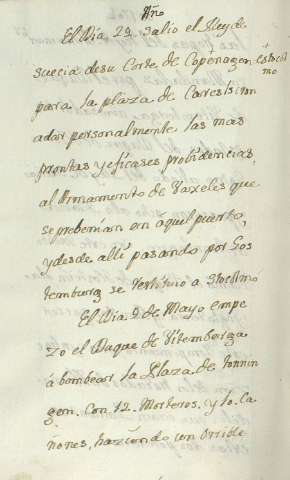 Año
El Dia 29 salio el Rey de
suecia desu Corte de Copenagen + Estocol
mo
para la plaza de
adar personalmente las mas
prontas y eficases probidencias,
al Armamento de Vaxeles que
se prebenian en aquel puerto,
y desde alli pasando por Gos
temburg se restituio a Stocolmo
El Dia 9 de Mayo empe
zo el Duque de Vitemberga
á bombear la Plaza de Tonnin
gen. Con 12 Morteros, y 10 Ca
ñones, haziendo un orrible